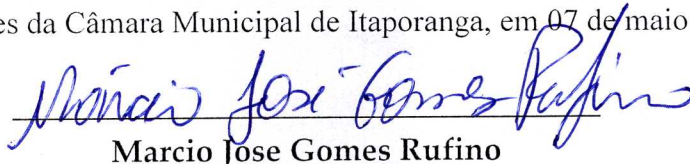 es da Câmara Municipal de Itaporanga, em 07 de maio
Márcio José Gomes Rufino
Marcio Jose Gomes Rufino